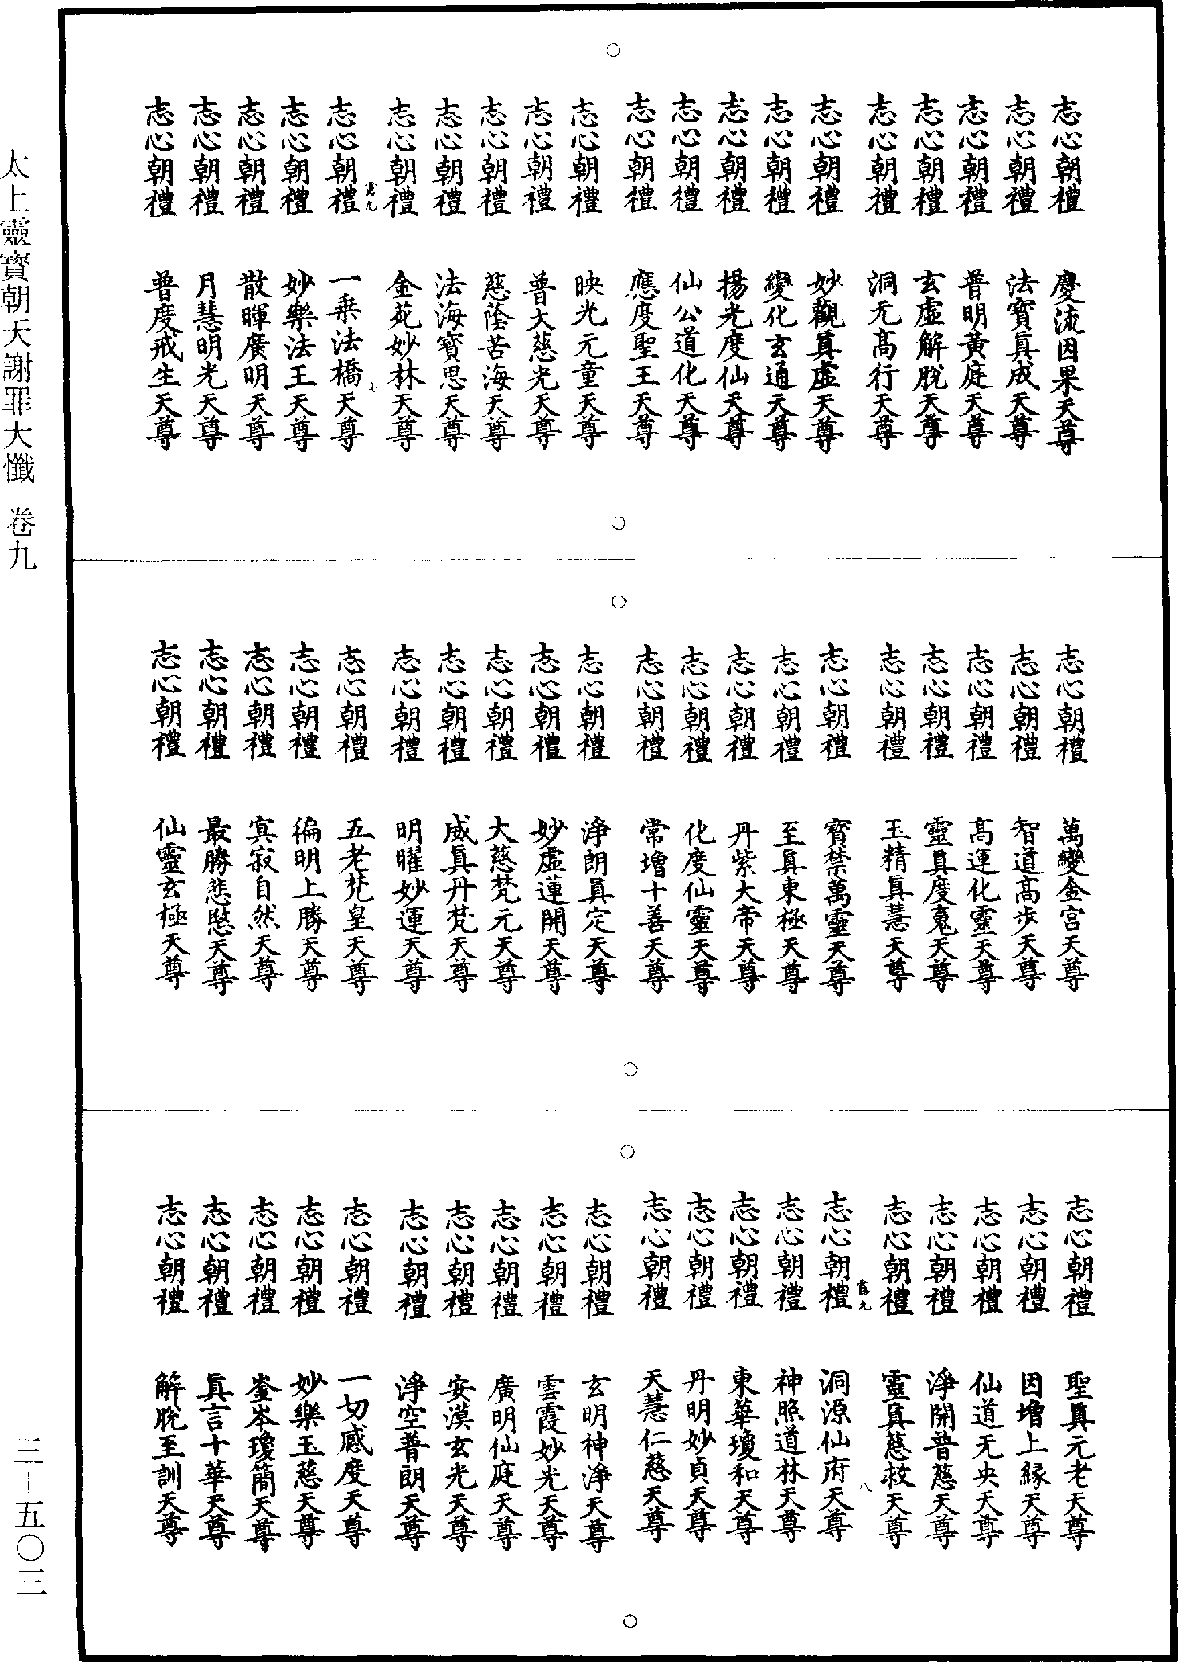 志心朝禮 慶流因果天尊
志心朝禮 法寶真成天尊
志心朝禮 普明黃庭天尊
志心朝禮 玄虛解脫天尊
志心朝禮 洞元高行天尊
志心朝禮 妙觀真虛天尊
志心朝禮 變化玄通天尊
志心朝禮 揚光度仙天尊
志心朝禮 仙公道化天尊
志心朝禮 應度聖王天尊
志心朝禮 映光元童天尊
志心朝禮 普大慈光天尊
志心朝禮 慈蔭苦海天尊
志心朝禮 法海寶思天尊
志心朝禮 金苑妙林天尊
志心朝禮 一乘法橋天尊
志心朝禮 妙樂法王天尊
志心朝禮 散暉廣明天尊
志心朝禮 月慧明光天尊
志心朝禮 普度戒生天尊
志心朝禮 萬變金宮天尊
志心朝禮 智道高步天尊
志心朝禮 高運化靈天尊
志心朝禮 靈真度寬天尊
志心朝禮 玉精真慧天尊
志心朝禮 寶禁萬靈天尊
志心朝禮 至真東極天尊
志心朝禮 丹紫大帝天尊
志心朝禮 化度仙靈天尊
志心朝禮 常增十善天尊
志心朝禮 淨朗真定天尊
志心朝禮 妙虛蓮開天尊
志心朝禮 大慈梵元天尊
志心朝禮 威真丹梵天尊
志心朝禮 明曜妙運天尊
志心朝禮 五老梵皇天尊
志心朝禮 徧明上勝天尊
志心朝禮 寞寂自然天尊
志心朝禮 最勝悲愍天尊
志心朝禮 仙靈玄極天尊
志心朝禮 聖真元老天尊
志心朝禮 因增上緣天尊
志心朝禮 仙道无央天尊
志心朝禮 淨開普慈天尊
志心朝禮 靈真慈救天尊
志心朝禮 洞源仙府天尊
八
志心朝禮 神照道林天尊
志心朝禮 東華瓊和天尊
志心朝禮 丹明妙貞天尊
志心朝禮 天慧仁慈天尊
志心朝禮 玄明神淨天尊
志心朝禮 雲霞妙光天尊
志心朝禮 廣明仙庭天尊
志心朝禮 安漠玄光天尊
志心朝禮 淨空普朗天尊
志心朝禮 一切感度天尊
志心朝禮 妙樂玉慈天尊
志心朝禮 崟岑瓊簡天尊
志心朝禮 真言十華天尊
志心朝禮 解脫至訓天尊
太上靈寶朝天謝罪大懺 卷九
三－五〇三